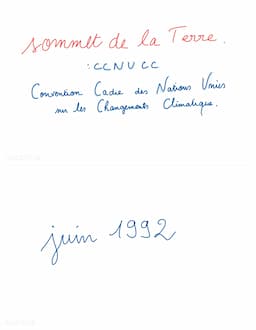 sommet de la Terre.
: CCNUCC
Convention Cadre des Nations Unies
sur les Changements Climatique.
juin 1992